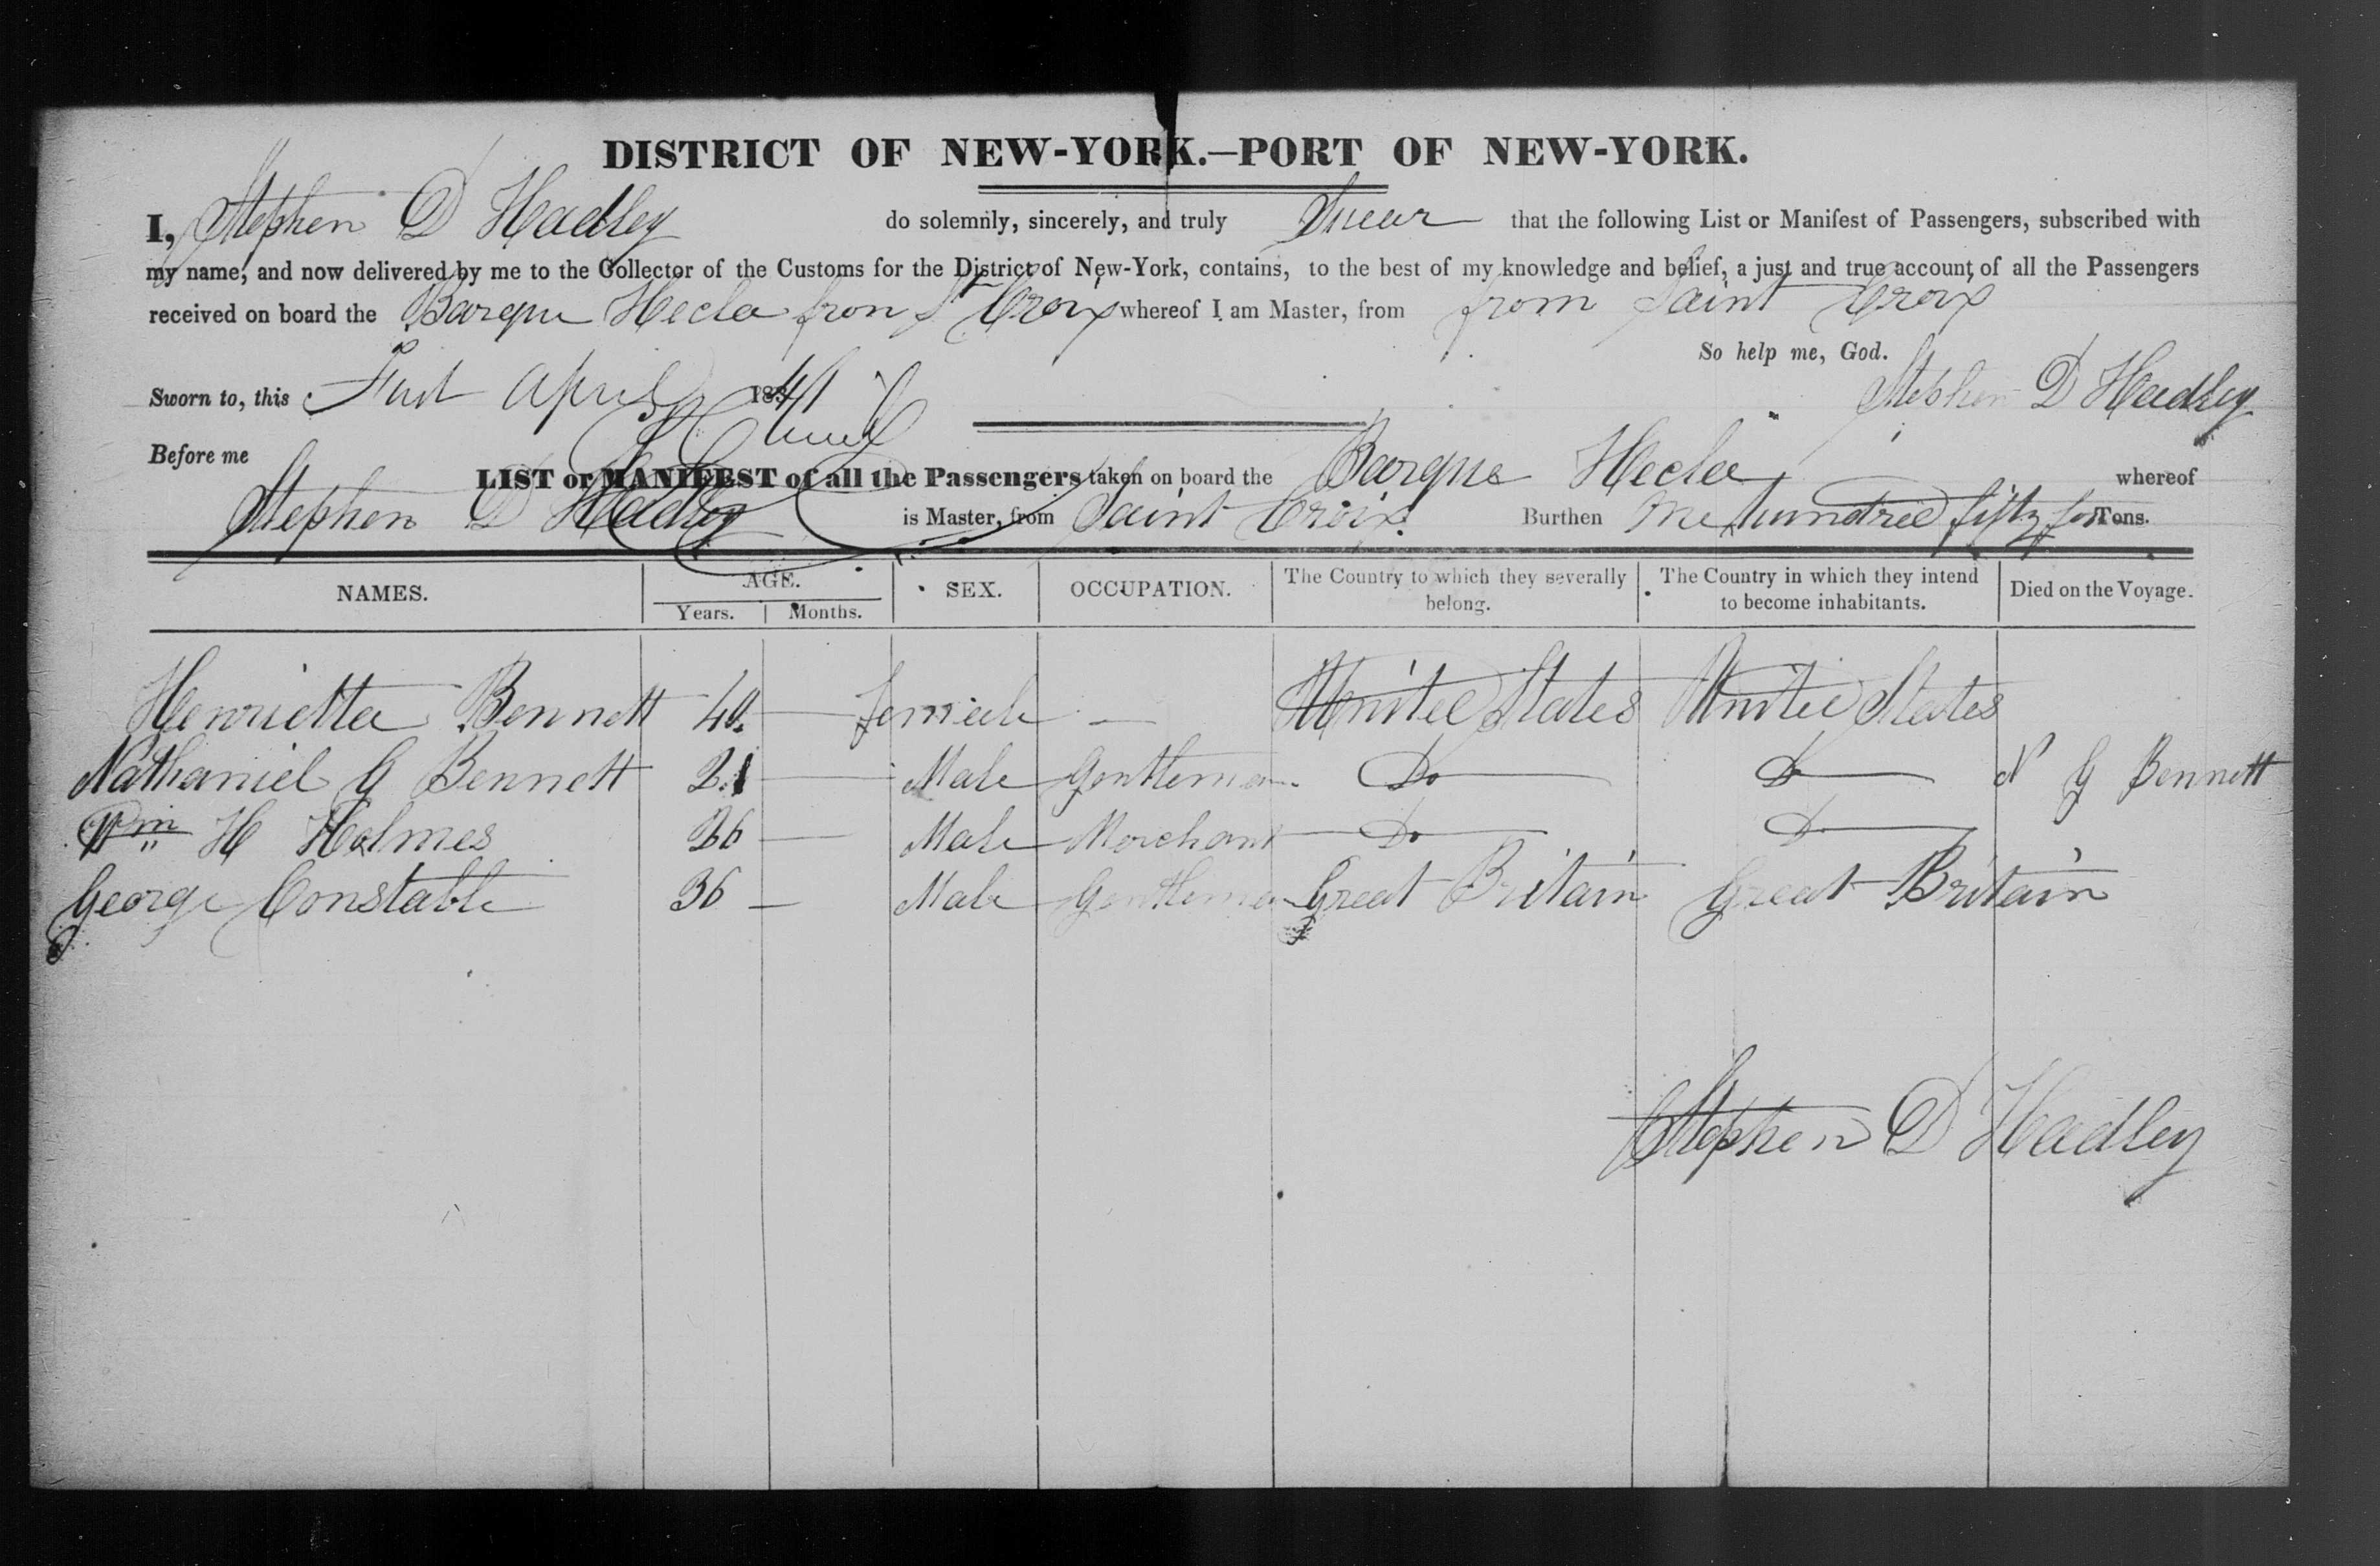 DISTRICT OF NEW-YORK.—PORT OF NEW-YORK.
I, Stephen D Hadley do solemnly, sincerely, and truly Swear that the following List or Manifest of Passengers, subscribed with
my name, and now delivered by me to the Collector of the Customs for the District of New-York, contains, to the best of my knowledge and belief, a just and true account of all the Passengers
received on board the Barque Hecla from St Croix whereof I am Master, from from Saint Croix
So help me, God.
Sworn to, this First April 1841 Stephen D Hadley
Before me
LIST or MANIFEST of all the Passengers taken on board the Barque Hecla whereof
Stephen D Hadley is Master, from Saint Croix Burthen One hundred fifty Tons.
NAMES. AGE. SEX. OCCUPATION. The Country to which they severally belong. The Country in which they intend to become inhabitants. Died on the Voyage.
Years. Months.
Henrietta Bennett 40. — Female — United States United States
Nathaniel G Bennett 21 — Male Gentleman Do Do N G Bennett
Wm H Holmes 26 — Male Merchant Do Do
George Constable 36 — Male Gentleman Great Britain Great Britain
Stephen D Hadley